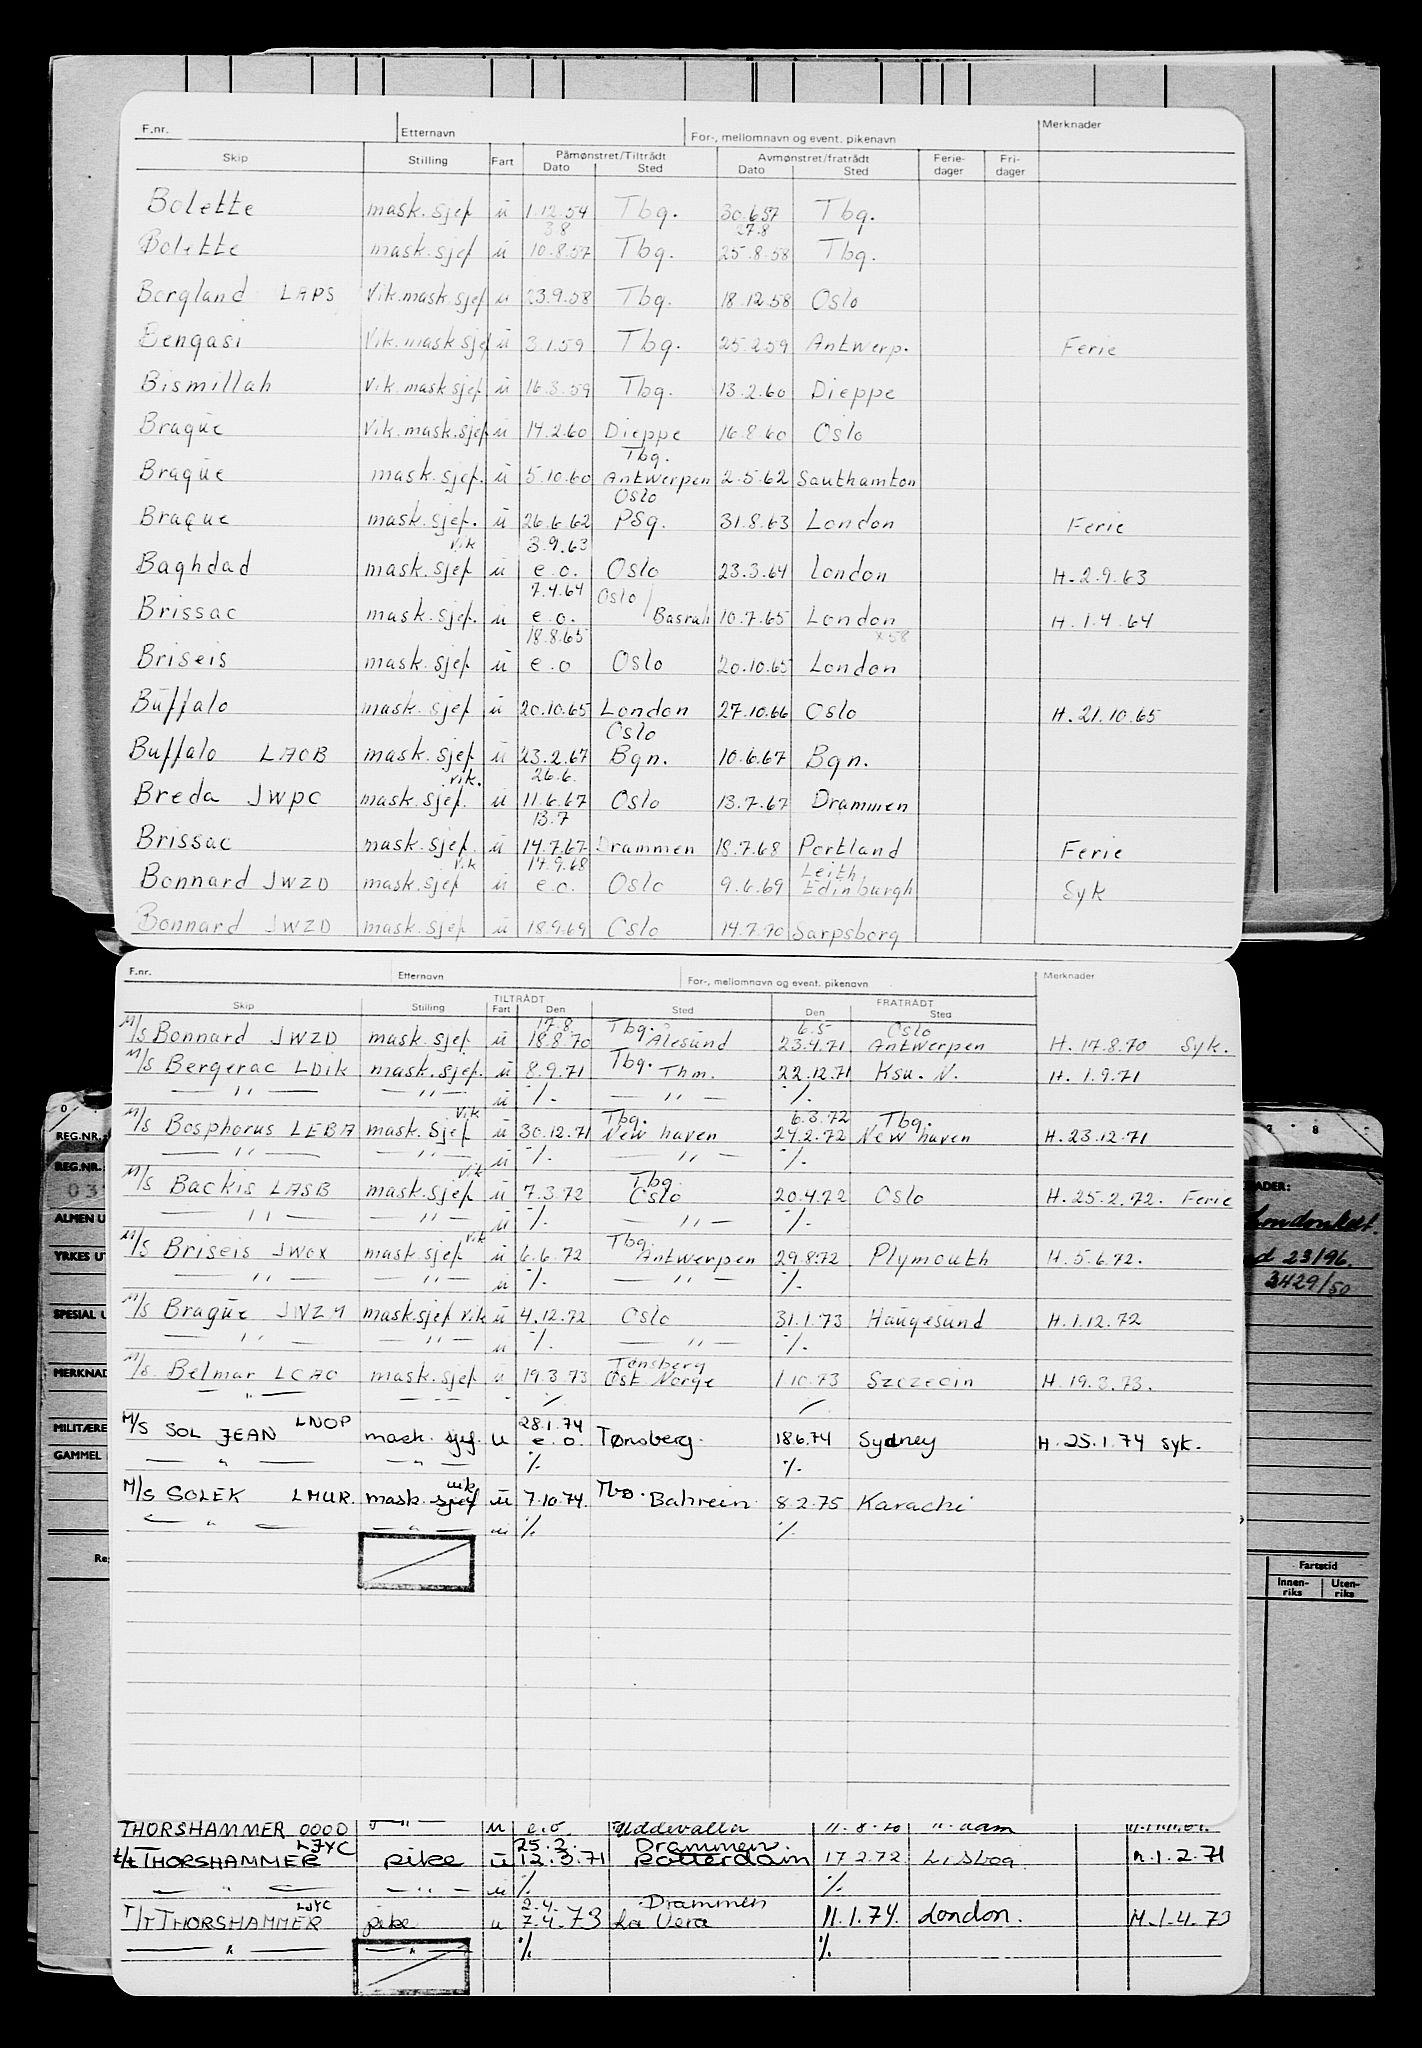 F.nr. Etternavn For-, mellomnavn og event. pikenavn Merknader
Skip Stilling Fart Påmønstret/Tiltrådt Avmønstret/fratrådt Ferie- Fri-
Dato Sted Dato Sted dager dager
Bolette mask.sjef u 1.12.54 Tbg. 30.6.57 Tbg.
3.8 27.8
Bolette mask.sjef u 10.8.57 Tbg. 25.8.58 Tbg.
Borgland LAPS Vik.mask.sjef u 23.9.58 Tbg. 18.12.58 Oslo
Bengasi Vik.mask sjef u 3.1.59 Tbg. 25.2.59 Antwerp. Ferie
Bismillah Vik.mask sjef u 16.3.59 Tbg. 13.2.60 Dieppe
Braque Vik.mask.sjef u 14.2.60 Dieppe 16.8.60 Oslo
Tbg.
Braque mask.sjef. u 5.10.60 Antwerpen 2.5.62 Southamton
Oslo
Braque mask.sjef. u 26.6.62 PSg. 31.8.63 London Ferie
vik 3.9.63
Baghdad mask.sjef u e.o. Oslo 23.3.64 London H. 2.9.63
7.4.64 Oslo /
Brissac mask.sjef. u e.o. Basrah 10.7.65 London H. 1.4.64
18.8.65 x58
Briseis mask.sjef u e.o Oslo 20.10.65 London
Buffalo mask.sjef u 20.10.65 London 27.10.66 Oslo H. 21.10.65
Oslo
Buffalo LAOB mask.sjef u 23.2.67 Bgn. 10.6.67 Bgn.
vik. 26.6.
Breda JWPC mask.sjef. u 11.6.67 Oslo 13.7.67 Drammen
13.7
Brissac mask.sjef. u 14.7.67 Drammen 18.7.68 Portland Ferie
vik 17.9.68 Leith
Bonnard JWZD mask.sjef u e.o. Oslo 9.6.69 Edinburgh Syk
Bonnard JWZD mask.sjef u 18.9.69 Oslo 14.7.70 Sarpsborg
F.nr. Etternavn For-, mellomnavn og event. pikenavn Merknader
Skip Stilling TILTRÅDT FRATRÅDT
Fart Den Sted Den Sted
17.8 Tbg. 6.5 Oslo
M/S Bonnard JWZD mask.sjef u 18.8.70 Ålesund 23.4.71 Antwerpen H. 17.8.70 Syk.
M/S Bergerac LDIK mask.sjef. u 8.9.71 Tbg. Thm. 22.12.71 Ksu. N. H. 1.9.71
— " — — " — u ·/. — " — ·/.
vik Tbg. 6.3.72 Tbg.
M/S Bosphorus LEBA mask.sjef u 30.12.71 New haven 24.2.72 New haven H. 23.12.71
— " — — " — u ·/. — " — ·/.
vik Tbg.
M/S Backis LASB mask.sjef u 7.3.72 Oslo 20.4.72 Oslo H. 25.2.72. Ferie
— " — — " — u ·/. — " — ·/.
vik Tbg.
M/S Briseis JWOX mask.sjef u 6.6.72 Antwerpen 29.8.72 Plymouth H. 5.6.72.
— " — — " — u ·/. — " — ·/.
M/S Braque mask.sjef vik u 4.12.72 Oslo 31.1.73 Haugesund H. 1.12.72
— " — — " — u ·/. — " — ·/.
Tønsberg
M/S. Belmar LCAO mask.sjef u 19.3.73 Øst Norge 1.10.73 Szczecin H. 19.3.73.
— " — — " — ·/. ·/.
28.1.74
M/S SOL JEAN LNOP mask. sjef. u e.o. Tønsberg. 18.6.74 Sydney H. 25.1.74 syk.
— " — — " — ·/. ·/.
vik
M/S SOLEK LMUR. mask.sjef u 7.10.74. Tbg. Bahrein 8.2.75 Karachi
— " — — " — u ·/. ·/.
THORSHAMMER — " — u e.o Uddevalla 11.8.70
LJYC 25.2. Drammen
t/t THORSHAMMER pike u 12.3.71 Rotterdam 17.2.72 Lisboa H. 1.2.71
— " — — " — u ·/. ·/.
LJYC 2.4. Drammen
T/T THORSHAMMER pike u 7.4.73 La Vera 11.1.74. London. H. 1.4.73
— " — — " — ·/. ·/.
REG.NR.
REG.NR.
ALMEN U
YRKES U
SPESIAL U
MERKNAD
MILITÆRE
GAMMEL
Re
ADER:
23/96.
3429/50
Fartstid
Innen- Uten-
riks riks